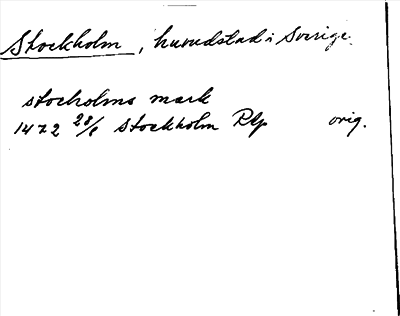 Stockholm, huvudstad i Sverige.
stocholms mark
1472 28/8 Stockholm Rlp orig.